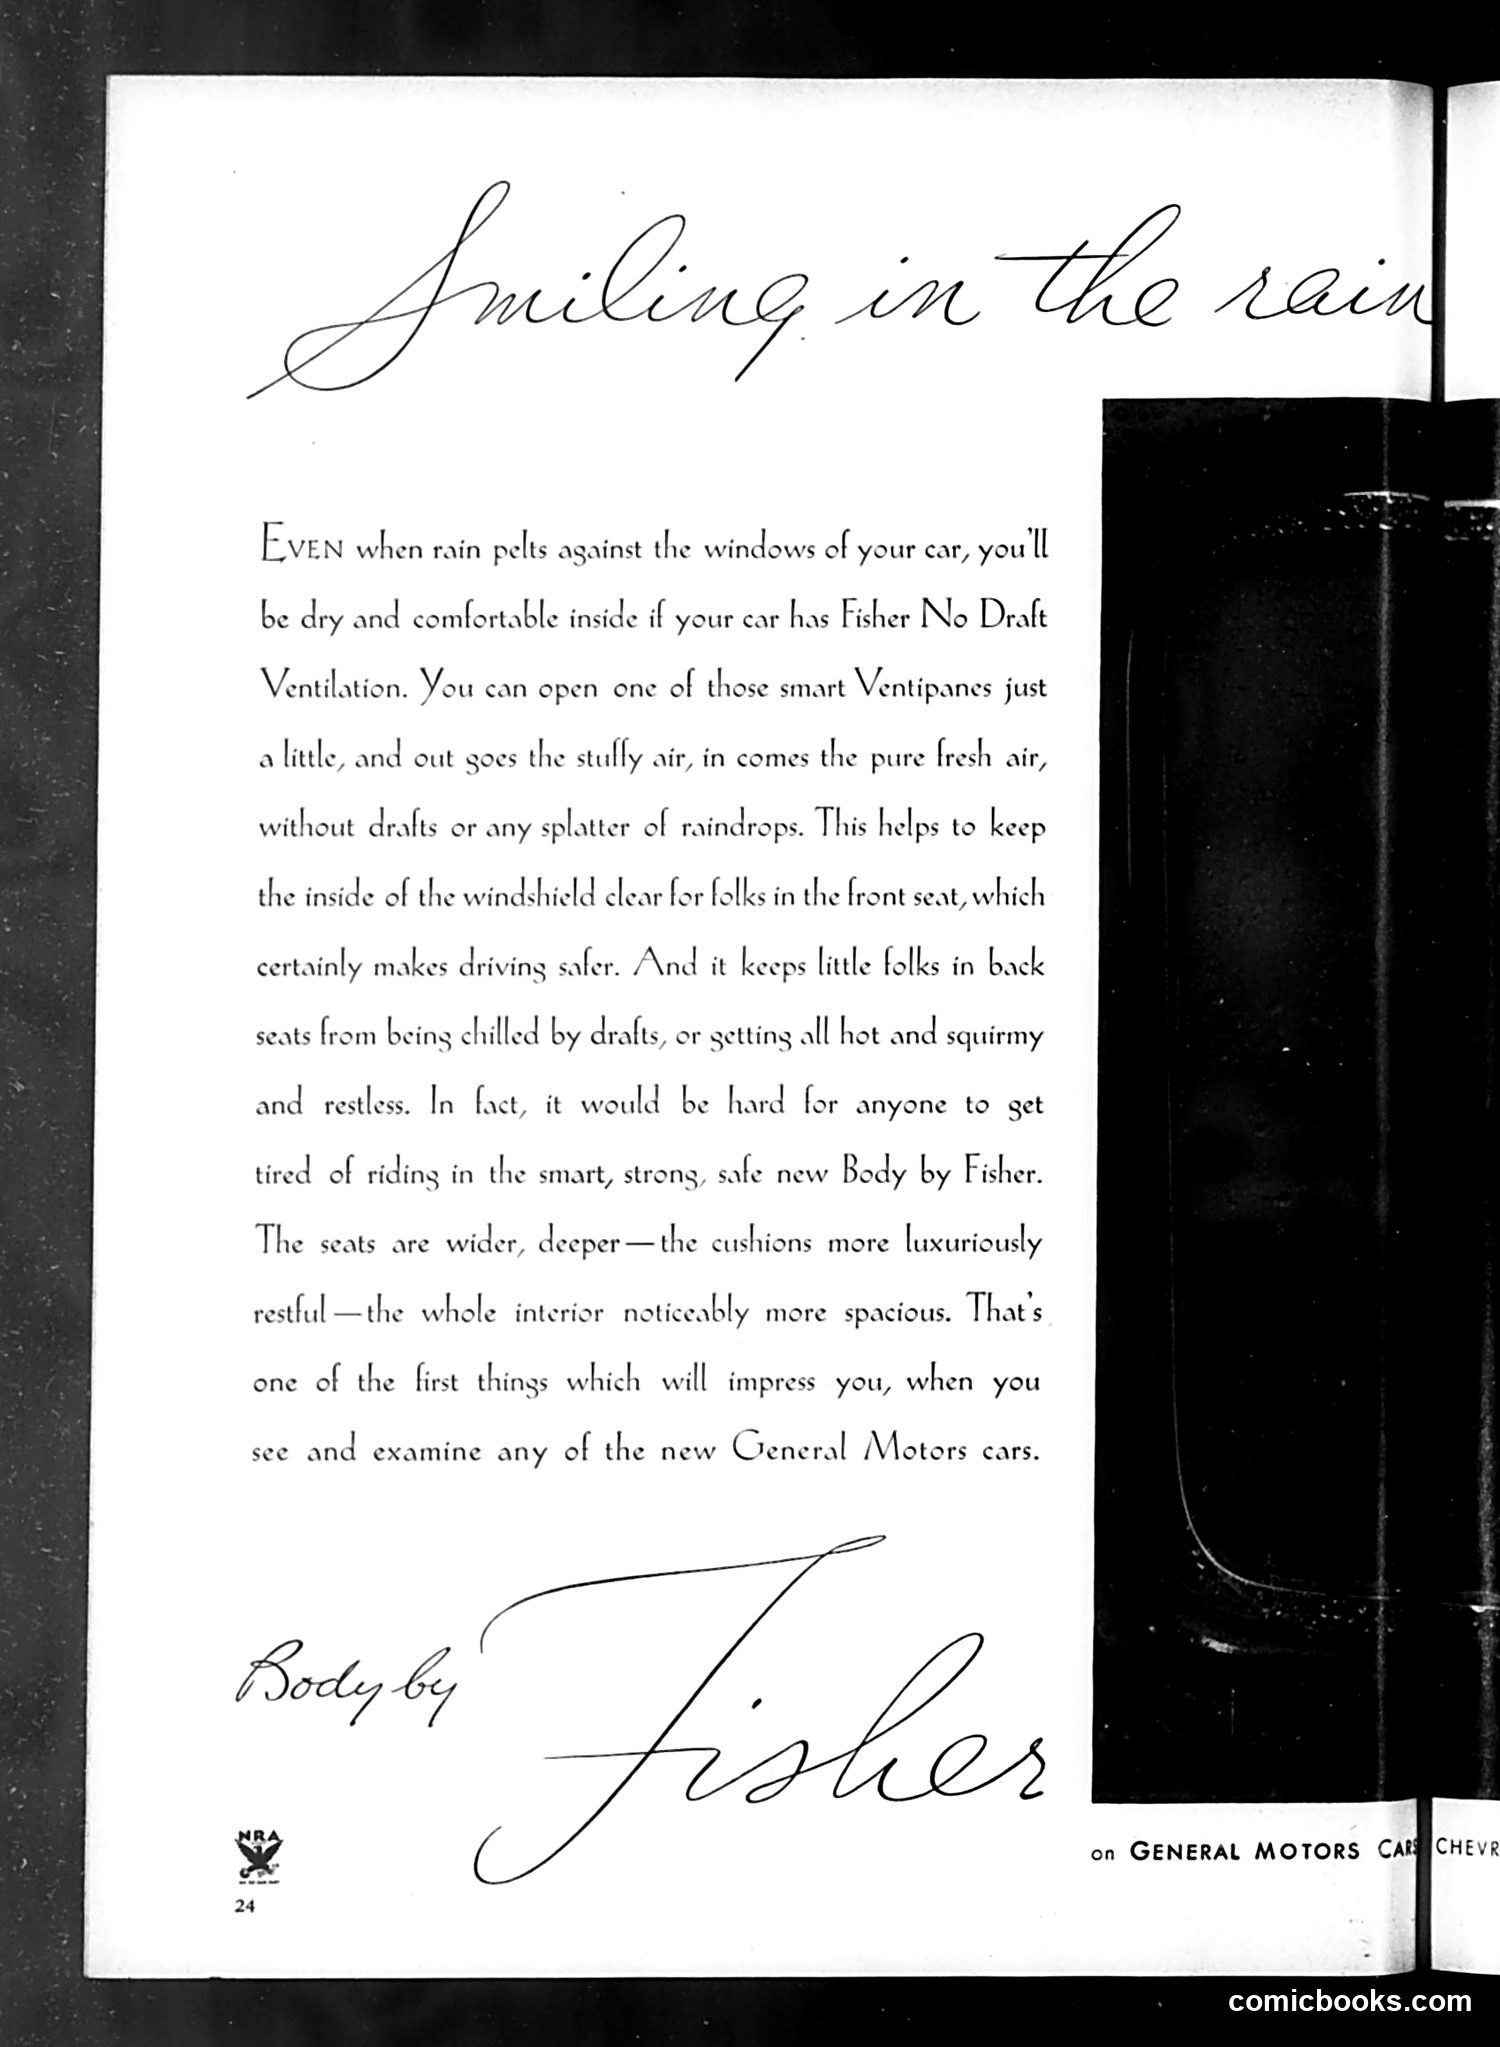 Smiling in the rain
EVEN when rain pelts against the windows of your car, you'll
be dry and comfortable inside if your car has Fisher No Draft
Ventilation. You can open one of those smart Ventipanes just
a little, and out goes the stuffy air, in comes the pure fresh air,
without drafts or any splatter of raindrops. This helps to keep
the inside of the windshield clear for folks in the front seat, which
certainly makes driving safer. And it keeps little folks in back
seats from being chilled by drafts, or getting all hot and squirmy
and restless. In fact, it would be hard for anyone to get
tired of riding in the smart, strong, safe new Body by Fisher.
The seats are wider, deeper—the cushions more luxuriously
restful—the whole interior noticeably more spacious. That's
one of the first things which will impress you, when you
see and examine any of the new General Motors cars.
Body by Fisher
NRA
on GENERAL MOTORS CARS CHEVR
24
comicbooks.com